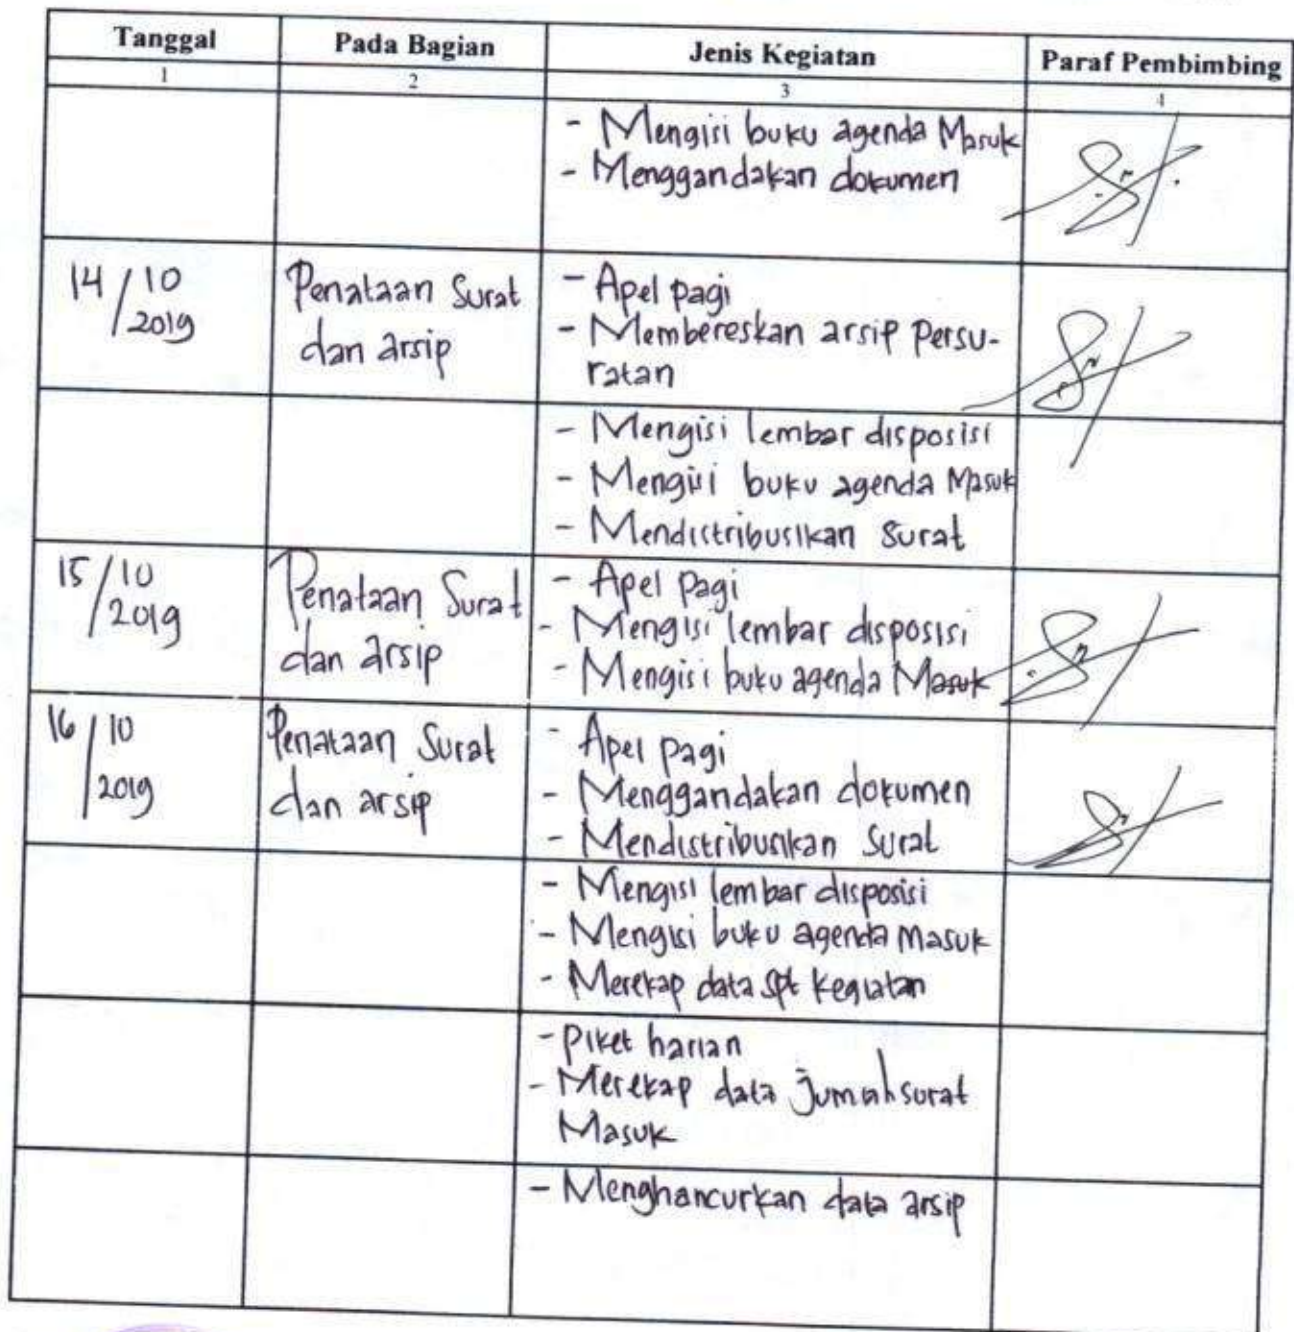 Tanggal Pada Bagian Jenis Kegiatan Paraf Pembimbing
1 2 3 4
- Mengisi buku agenda Masuk
- Menggandakan dokumen
14/10 2019 Penataan Surat dan arsip
- Apel pagi
- Membereskan arsip Persu-
ratan
- Mengisi lembar disposisi
- Mengisi buku agenda Masuk
- Mendistribusikan Surat
15/10 2019 Penataan Surat dan arsip
- Apel Pagi
- Mengisi lembar disposisi
- Mengisi buku agenda Masuk
16/10 2019 Penataan Surat dan arsip
- Apel pagi
- Menggandakan dokumen
- Mendistribusikan Surat
- Mengisi lembar disposisi
- Mengisi buku agenda Masuk
- Merekap data Spt kegiatan
- Piket harian
- Merekap data Jumlah surat
Masuk
- Menghancurkan data arsip